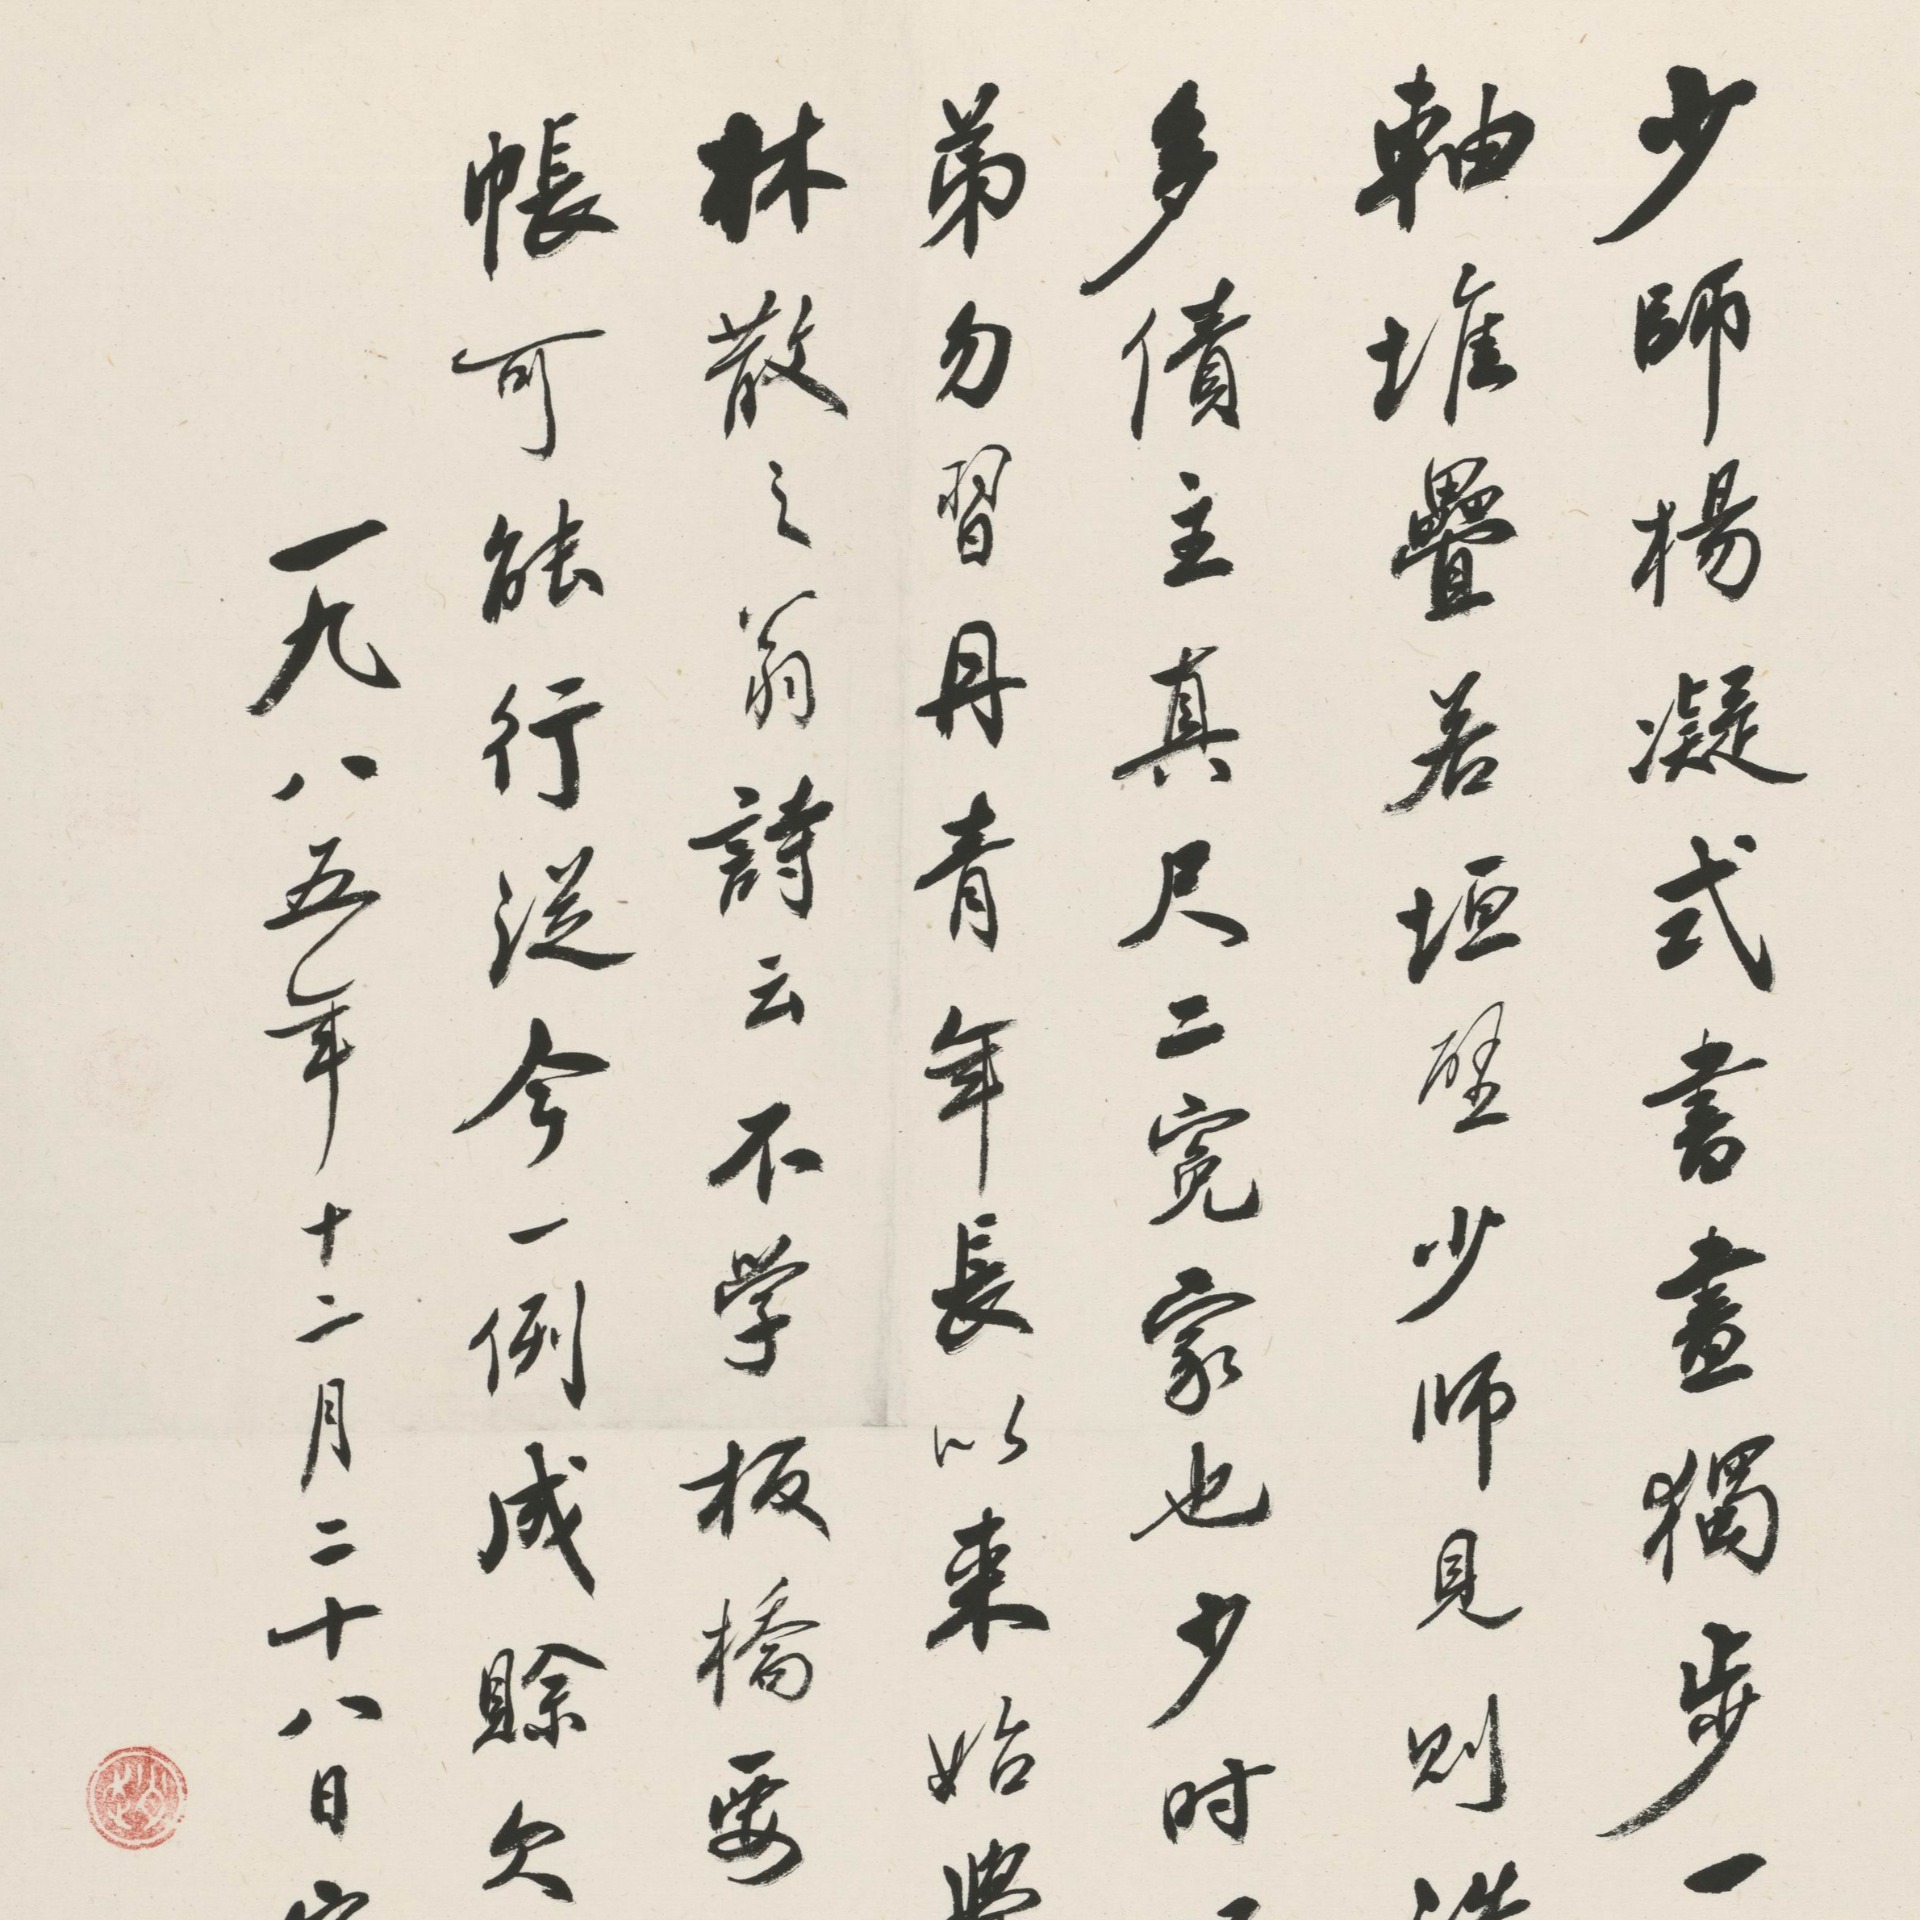 少師楊凝式書畫獨步一
軸堆疊若垣壁少师見则浩
多债主真尺二冤家也少时
弟勿習丹青年長以来始興
林散之翁詩云不学板橋要
帳可能行從今一例成賒欠
一九八五年十二月二十八日